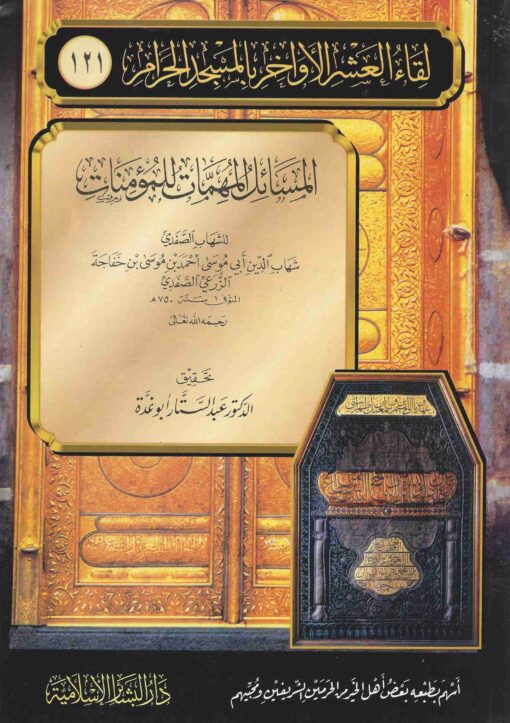 لقاء العشر الأواخر بالمسجد الحرام
١٢١
المسائل المهمات للمؤمنات
للشهاب الصفدي
شهاب الدين أبي موسى أحمد بن موسى بن خفاجة
الزرعي الصفدي
المتوفى سنة ٧٥٠ هـ
رحمه الله تعالى
تحقيق
الدكتور عبد الستار أبو غدة
أسهم بطبعه بعض أهل الخير من الحرمين الشريفين ومحبيهم
دار البشائر الإسلامية